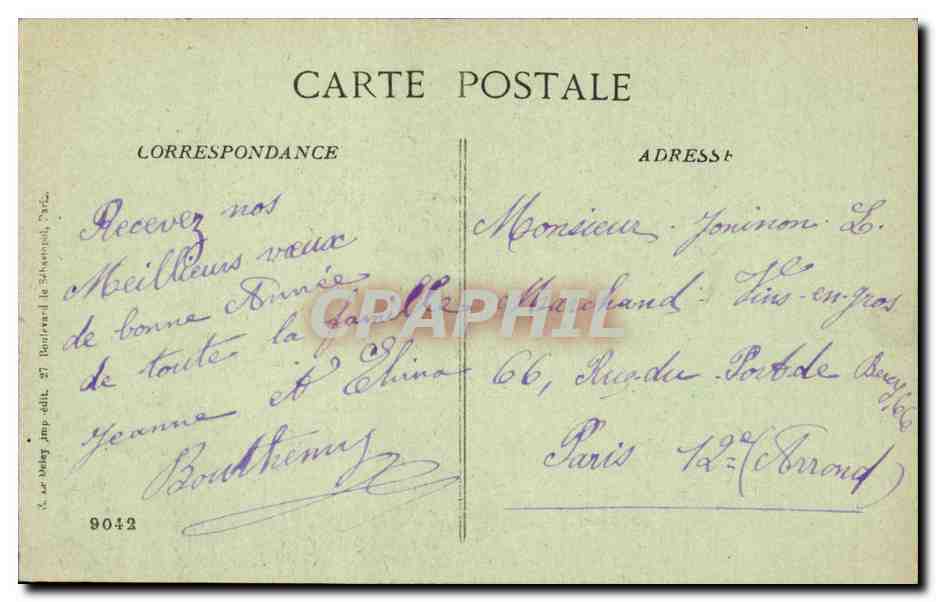 CARTE POSTALE
CORRESPONDANCE
Recevez nos
Meillieurs vœux
de bonne Année
de toute la famille
Jeanne et
Bouthemy
9042
ADRESSE
Monsieur Joninon L.
Marchand Vins-en-gros
66, Rue du Port de Bercy 66
Paris 12e (Arrond)
imp.-édit. 27 Boulevard de Sébastopol, Paris.
CPAPHIL